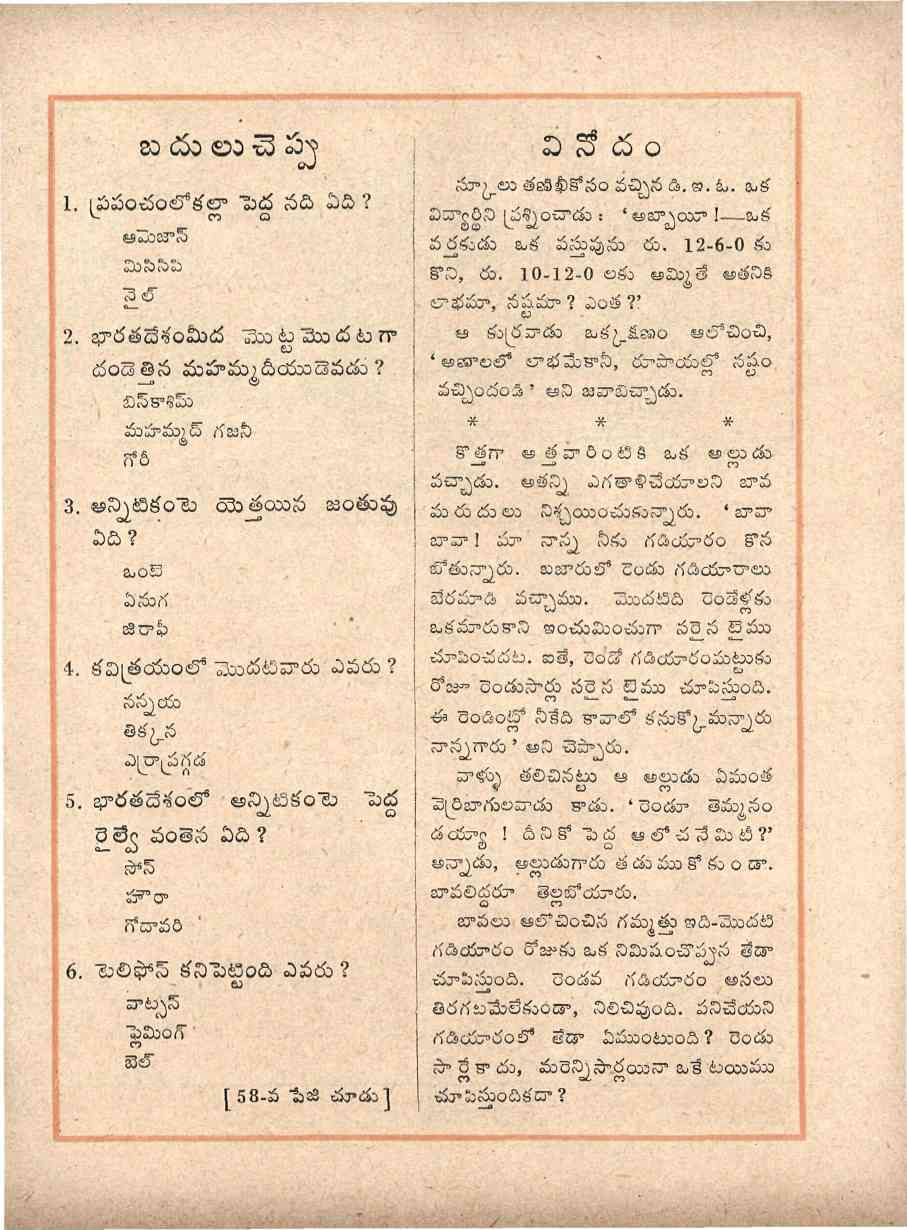 బదులుచెప్పు
1. ప్రపంచంలోకల్లా పెద్ద నది ఏది ?
ఆమెజాన్
మిసిసిపి
నైల్
2. భారతదేశంమీద మొట్టమొదటగా
దండెత్తిన మహమ్మదీయుడెవడు ?
బిన్‌కాశిమ్
మహమ్మద్ గజనీ
గోరీ
3. అన్నిటికంటె యెత్తయిన జంతువు
ఏది ?
ఒంటె
ఏనుగ
జిరాఫీ
4. కవిత్రయంలో మొదటివారు ఎవరు ?
నన్నయ
తిక్కన
ఎఱ్ఱాప్రగ్గడ
5. భారతదేశంలో అన్నిటికంటె పెద్ద
రైల్వే వంతెన ఏది ?
సోన్
హౌరా
గోదావరి
6. టెలిఫోన్ కనిపెట్టింది ఎవరు ?
వాట్సన్
ఫ్లెమింగ్
బెల్
[ 58-వ పేజి చూడు ]
వినోదం
స్కూలు తణిఖీకోసం వచ్చిన డి. ఇ. ఓ. ఒక
విద్యార్థిని ప్రశ్నించాడు : ‘ అబ్బాయీ !—ఒక
వర్తకుడు ఒక వస్తువును రు. 12-6-0 కు
కొని, రు. 10-12-0 లకు అమ్మితే అతనికి
లాభమా, నష్టమా ? ఎంత ?’
ఆ కుర్రవాడు ఒక్కక్షణం ఆలోచించి,
‘ అణాలలో లాభమేకానీ, రూపాయల్లో నష్టం
వచ్చిందండి ’ అని జవాబిచ్చాడు.
* * *
కొత్తగా అత్తవారింటికి ఒక అల్లుడు
వచ్చాడు. అతన్ని ఎగతాళిచేయాలని బావ
మరుదులు నిశ్చయించుకున్నారు. ‘ బావా
బావా ! మా నాన్న నీకు గడియారం కొన
బోతున్నారు. బజారులో రెండు గడియారాలు
బేరమాడి వచ్చాము. మొదటిది రెండేళ్లకు
ఒకమారుకాని ఇంచుమించుగా సరైన టైము
చూపించదట. ఐతే, రెండో గడియారంమట్టుకు
రోజూ రెండుసార్లు సరైన టైము చూపిస్తుంది.
ఈ రెండింట్లో నీకేది కావాలో కనుక్కోమన్నారు
నాన్నగారు ’ అని చెప్పారు.
వాళ్ళు తలిచినట్టు ఆ అల్లుడు ఏమంత
వెర్రిబాగులవాడు కాడు. ‘ రెండూ తెమ్మనం
డయ్యా ! దీనికో పెద్ద ఆలోచనేమిటీ ?’
అన్నాడు, అల్లుడుగారు తడుముకోకుండా.
బావలిద్దరూ తెల్లబోయారు.
బావలు ఆలోచించిన గమ్మత్తు ఇది-మొదటి
గడియారం రోజుకు ఒక నిమిషంచొప్పున తేడా
చూపిస్తుంది. రెండవ గడియారం అసలు
తిరగటమేలేకుండా, నిలిచివుంది. పనిచేయని
గడియారంలో తేడా ఏముంటుంది ? రెండు
సార్లేకాదు, మరెన్నిసార్లయినా ఒకే టయిము
చూపిస్తుందికదా ?